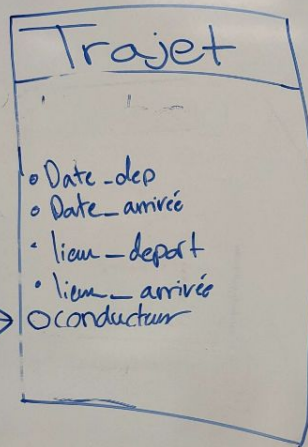 Trajet
Date_dep
Date_arrivée
lieu_depart
lieu_arrivée
conducteur